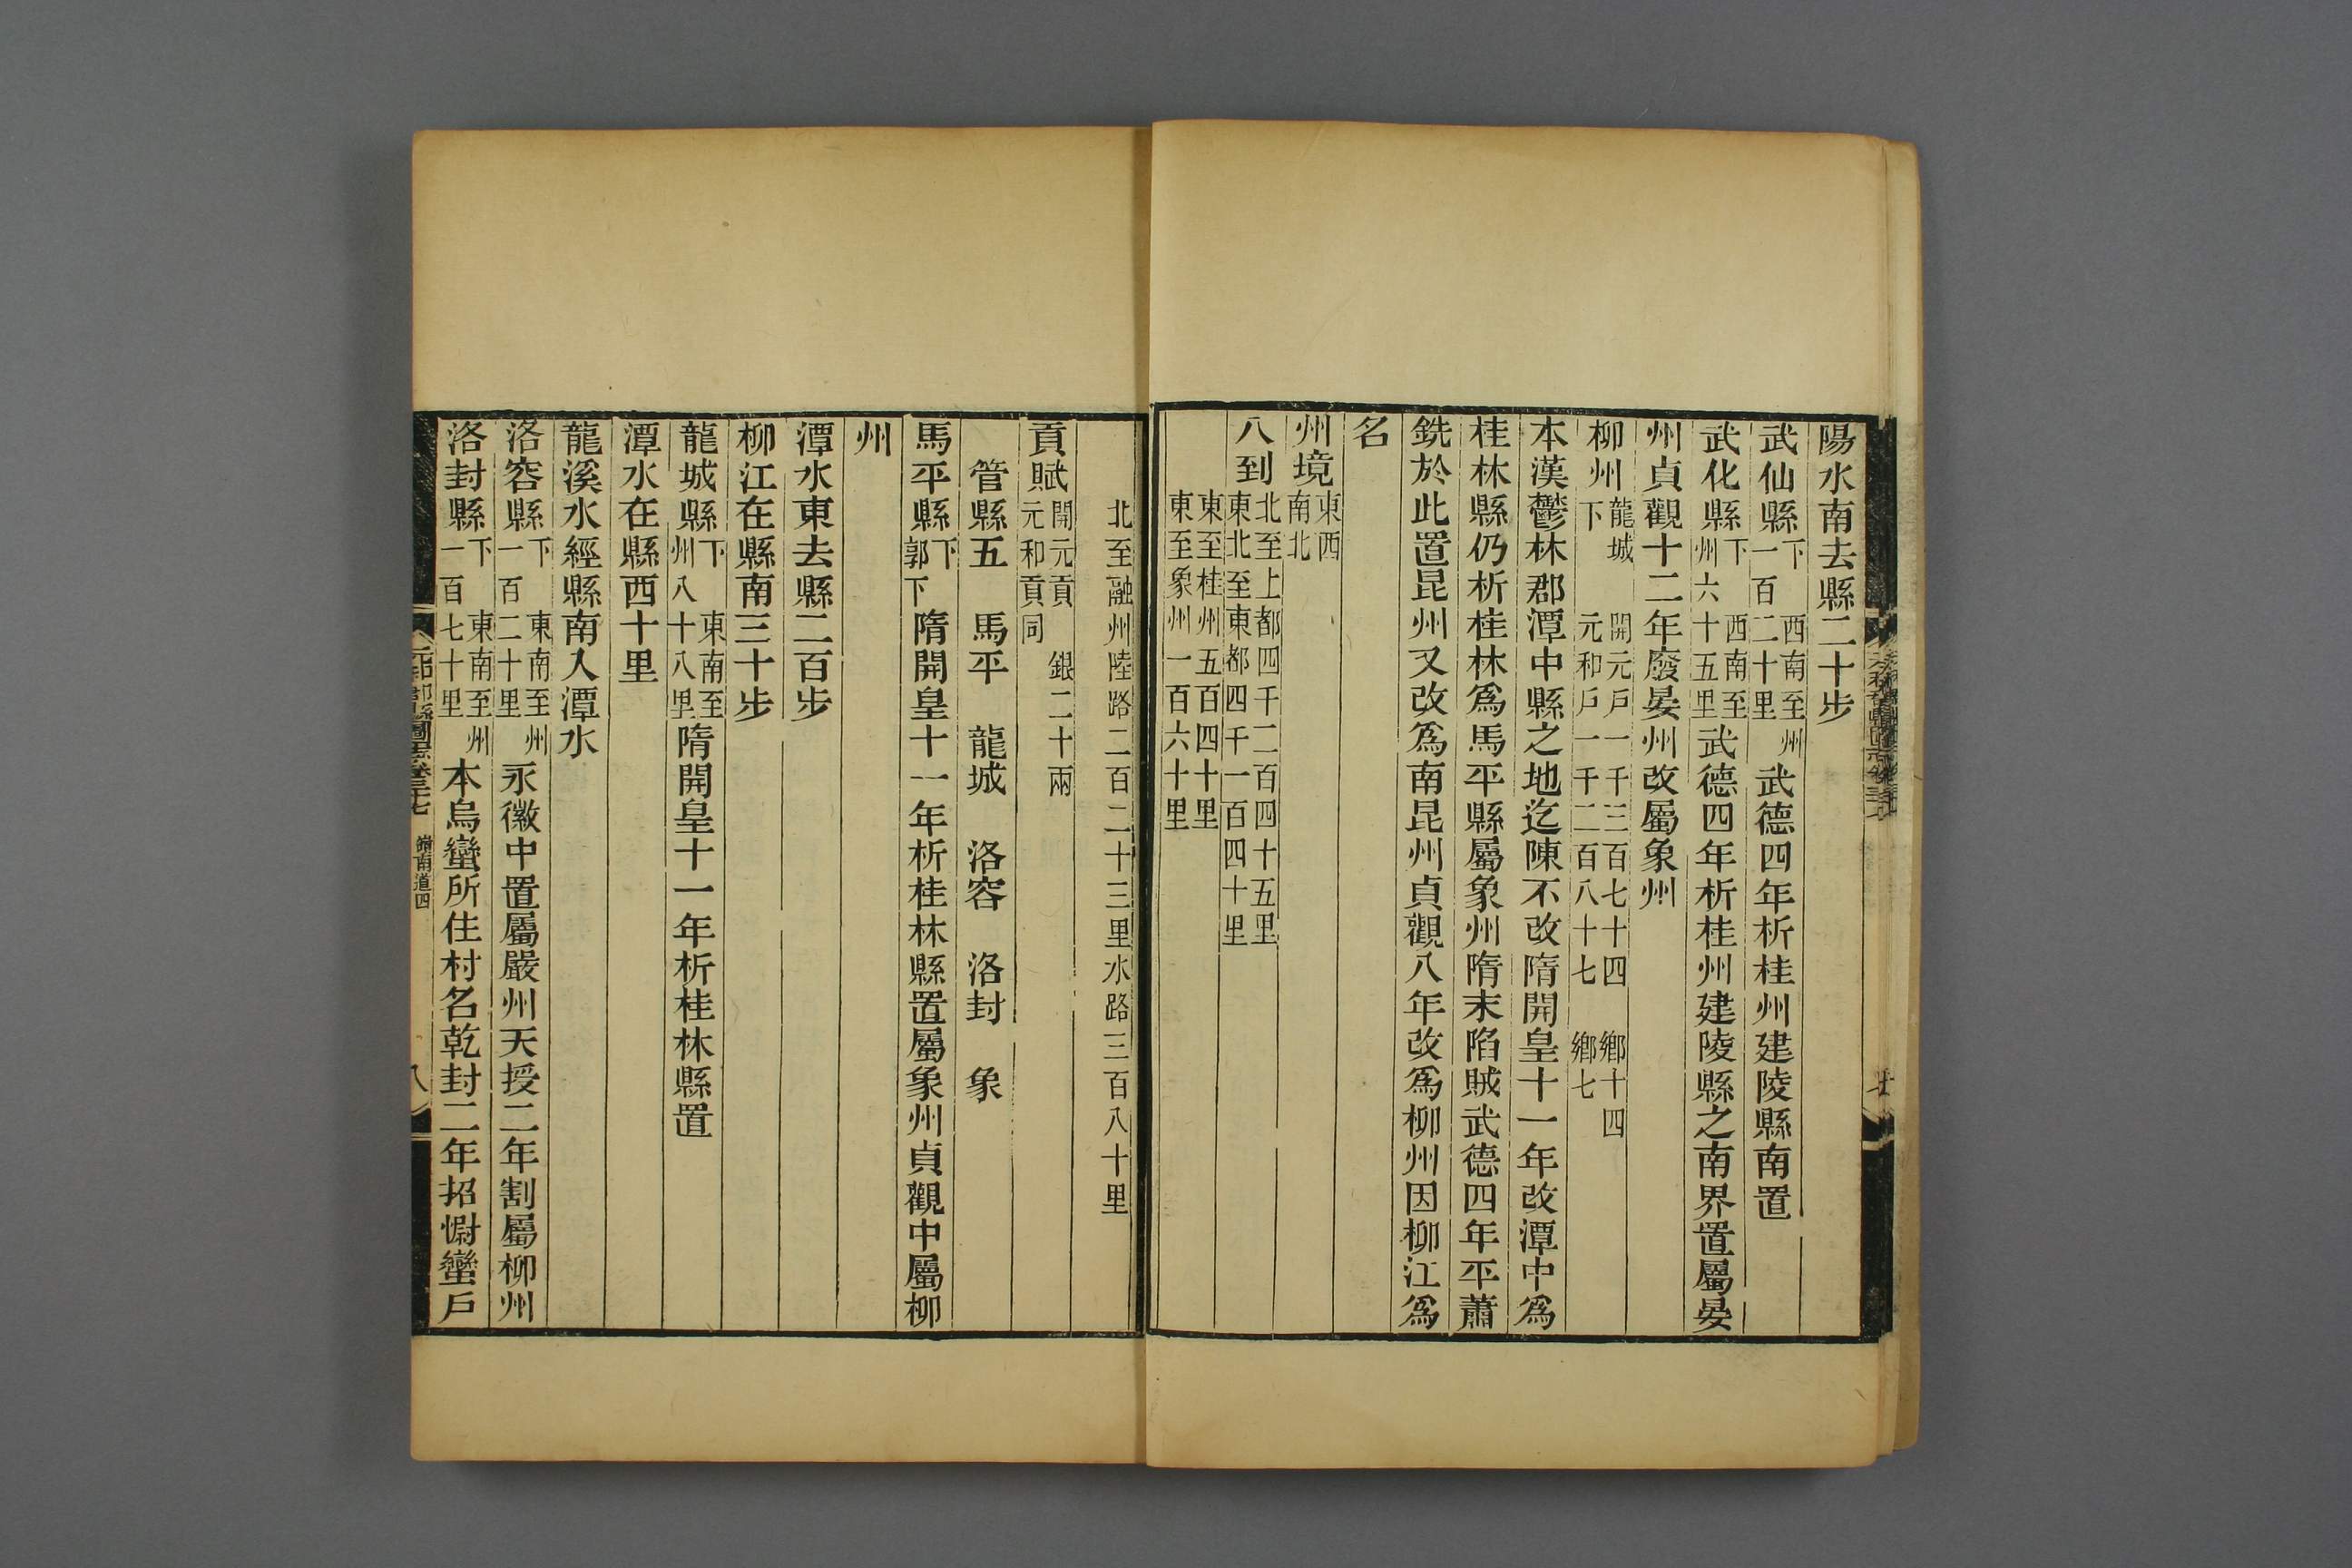 陽水南去縣二十步
武仙縣下 西南至州一百二十里 武德四年析桂州建陵縣南置
武化縣下 西南至州六十五里 武德四年析桂州建陵縣之南界置屬晏
州貞觀十二年廢晏州改屬象州
柳州龍城下 開元戶一千三百七十四 鄉十四 元和戶一千二百八十七 鄉七
本漢鬱林郡潭中縣之地迄陳不改隋開皇十一年改潭中爲
桂林縣仍析桂林爲馬平縣屬象州隋末陷賊武德四年平蕭
銑於此置昆州又改爲南昆州貞觀八年改爲柳州因柳江爲
名
州境東西南北
八到北至上都四千二百四十五里東北至東都四千一百四十里
東至桂州五百四十里東至象州一百六十里
北至融州陸路二百二十三里水路三百八十里
貢賦開元貢 銀二十兩元和貢同
管縣五 馬平 龍城 洛容 洛封 象
馬平縣下郭下 隋開皇十一年析桂林縣置屬象州貞觀中屬柳
州
潭水東去縣二百步
柳江在縣南三十步
龍城縣下 東南至州八十八里 隋開皇十一年析桂林縣置
潭水在縣西十里
龍溪水經縣南入潭水
洛容縣下 東南至州一百二十里 永徽中置屬嚴州天授二年割屬柳州
洛封縣下 東南至州一百七十里 本烏蠻所住村名乾封二年招慰蠻戶
元和郡縣圖志卷三十七 嶺南道四 八